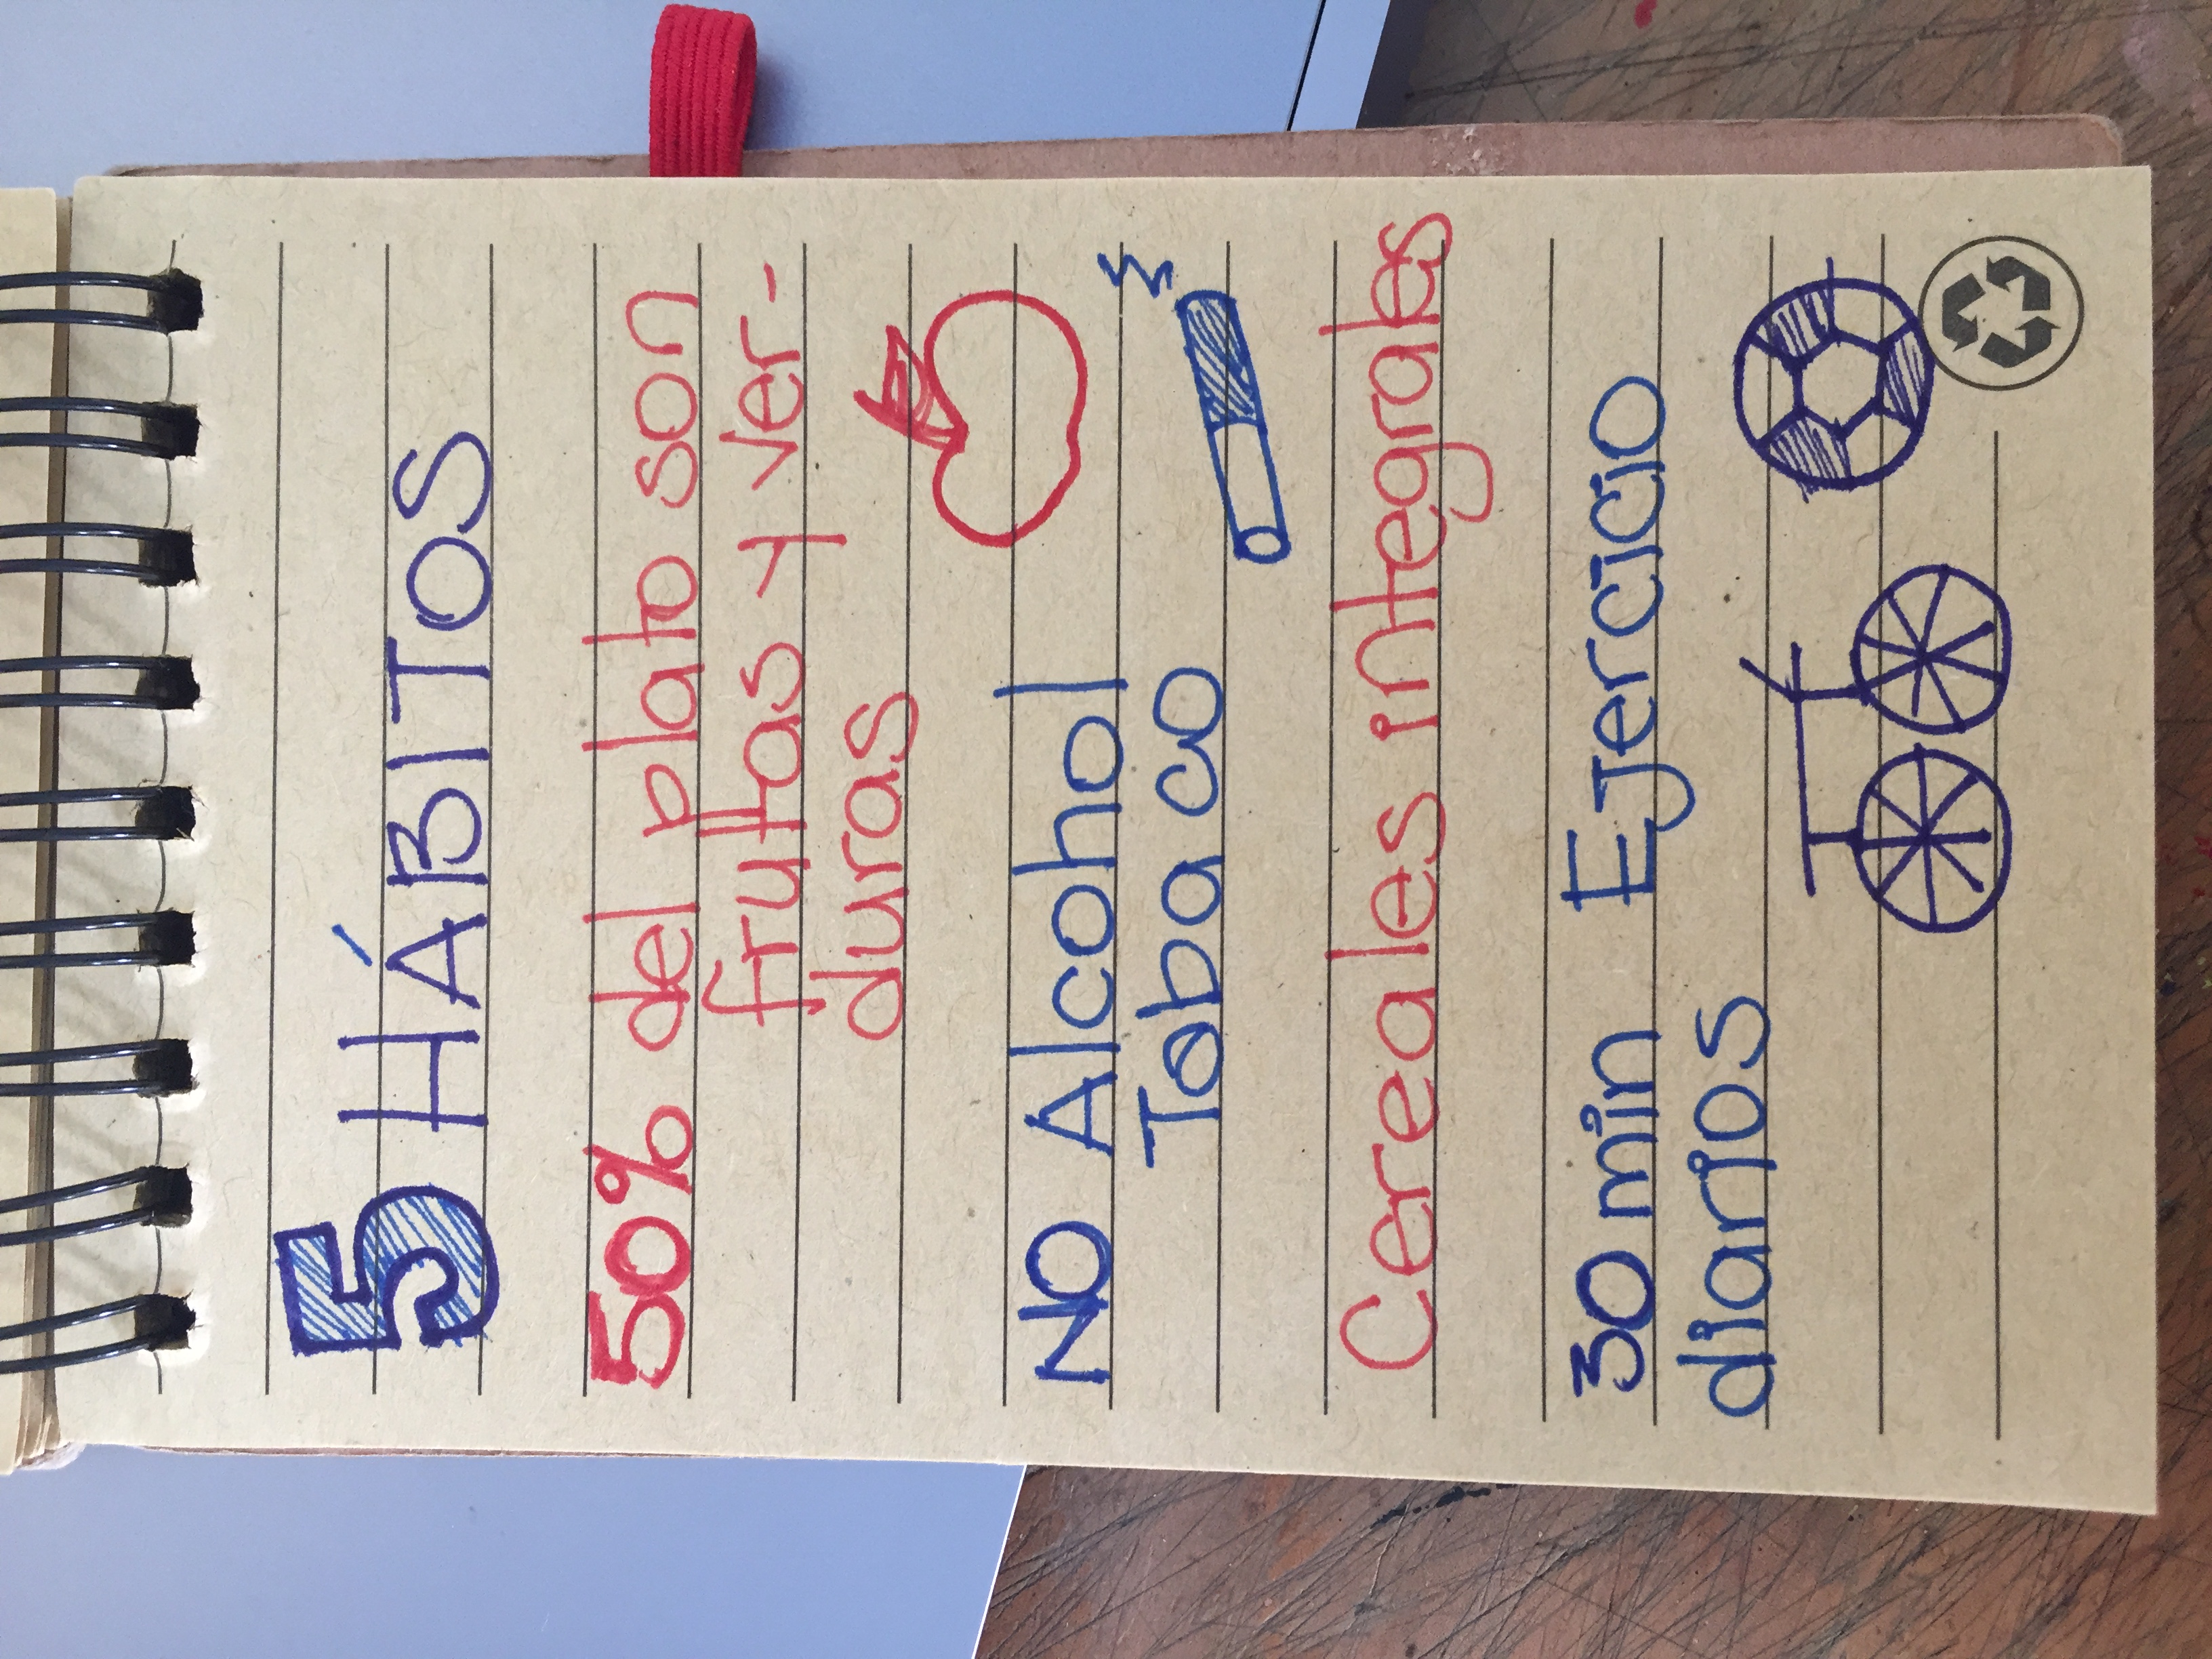 5 HÁBITOS
50% del plato son
fruttas y ver-
duras
NO Alcohol
Tabaco
Cereales integrales
30 min Ejercicio
diarios